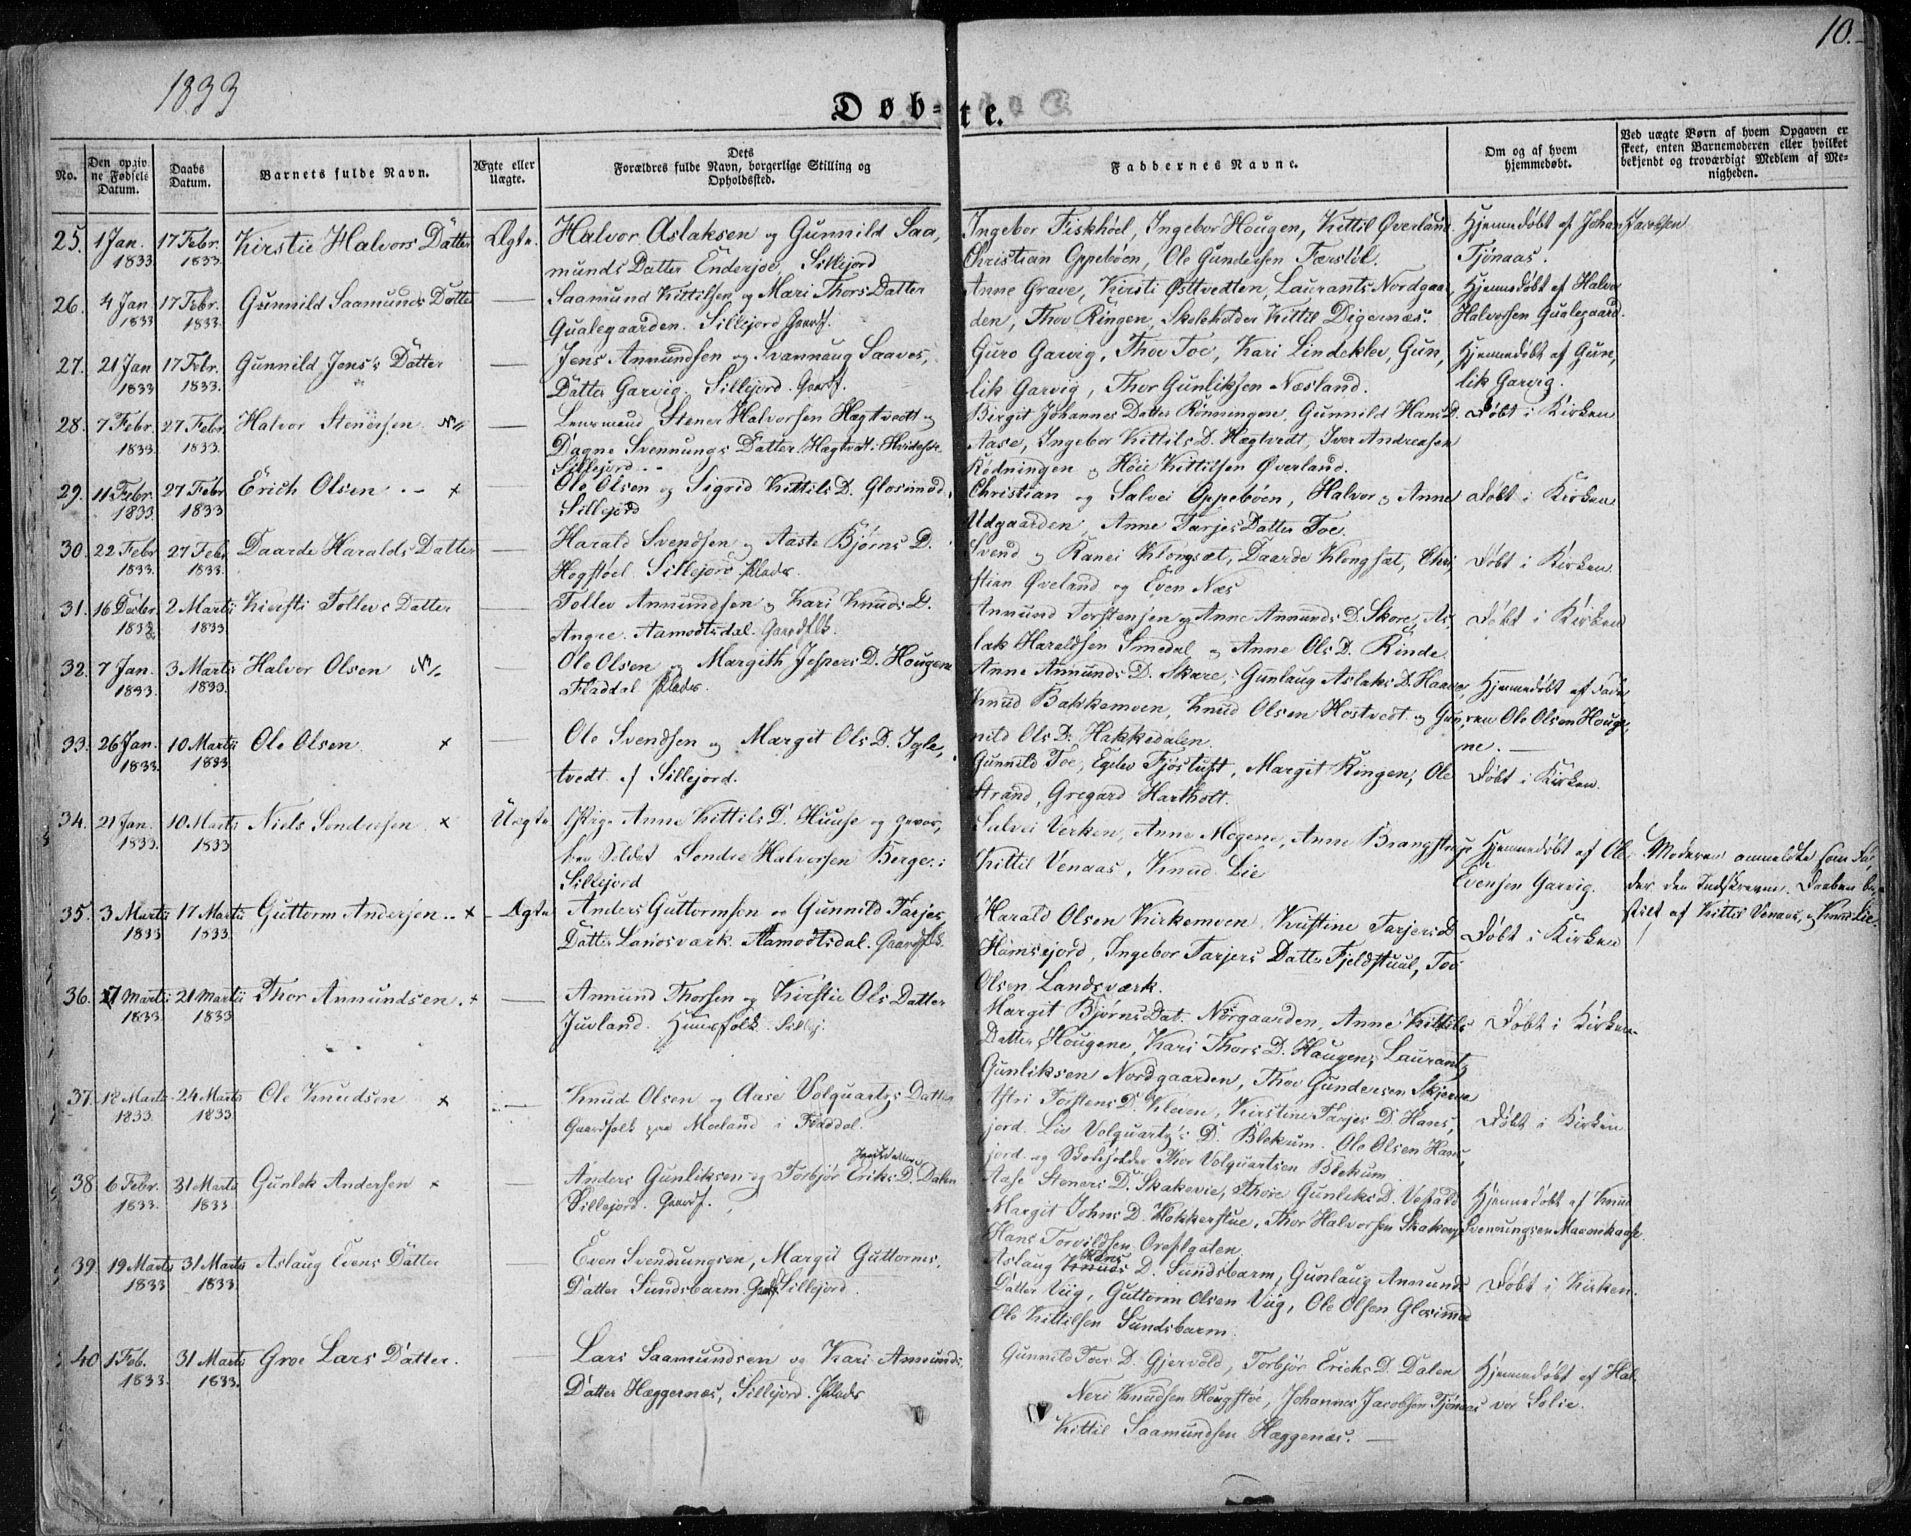 10.
1833
Døb=te.
No.
Den opgivne Fødsels Datum.
Daabs Datum.
Barnets fulde Navn.
Ægte eller Uægte.
Dets Forældres fulde Navn, borgerlige Stilling og Opholdssted.
Faddernes Navne.
Om og af hvem hjemmedøbt.
Ved uægte Børn af hvem Opgaven er skeet, enten Barnemoderen eller hvilket bekjendt og troværdigt Medlem af Menigheden.
25. 1 Jan. 1833 17 Febr. 1833. Kirstie Halvors Datter Ægte. Halvor Aslaksen og Gunnild Saa,
munds Datter Enderjoe, Sillejord
Ingebor Fiskhoel, Ingebor Hougen, Kittil Øverland
Christian Oppebøen, Ole Gundersen Færstøl.
Hjemmedøbt af Johan Jacobsen
Tjønaas.
26. 4 Jan 1833 17 Febr. 1833. Gunnild Saamunds Datter — Saamund Kittilsen og Mari Thors Datter
Qualegaarden. Sillejord Gaardf.
Anne Grave, Kirsti Østtvedten, Laurants Nordgaar
den, Thor Ringen, Skoleholder Kittil Digernæs.
Hjemmedøbt af Halvor
Halvorsen Qualegaard.
27. 21 Jan 1833 17 Febr. 1833. Gunnild Jens's Datter — Jens Anmundsen og Svannaug Saaves,
Datter Garvig. Sillejord. Gaardf.
Guro Garvig, Thor Toe, Kari Lindeklev, Gun,
lik Garvig, Thor Gunliksen Næsland.
Hjemmedøbt af Gun,
lik Garvig.
28. 7 Febr. 1833 27 Febr 1833. Halvor Stenersen — Lensmand Stener Halvorsen Hægtvedt og
Dagne Svennungs Datter Hægtvedt
Sillejord
Birgit Johannes Datter Rönningene, Gunnild Hans D.
Aase, Ingebor Kittils D. Hægtvedt, Iver Andreasen
Rødningen og Höie Kittilsen Øverland.
Døbt i Kirken
29. 11 Febr. 1833. 27 Febr 1833 Erich Olsen x — Ole Olsen og Sigrid Kittils D. Glosimod,
Sillejord
Christian og Salvei Oppebøen, Halvor og Anne
Udgaarden, Anne Tarjes Datter Toe.
Døbt i Kirken
30. 22 Febr 1833. 27 Febr 1833. Daarde Haralds Datter — Harald Svendsen og Aaste Bjørns D.
Hogstøel. Sillejord Plads.
Svend og Ranei Klongsæt, Daarde Klongsæt, Chri,
stian Øveland og Even Næs
Døbt i Kirken
31. 16 Decbr. 1832 2 Martii 1833 Kirsti Tollevs Datter — Tollev Anmundsen og Kari Knuds D.
Angre. Aamodtsdal. Gaardflk.
Anmund Torstensen og Anne Anmunds D. Skore, As,
lak Hareldsen Smedal og Anne Ols D. Rinde
Døbt i Kirken
32. 7 Jan. 1833. 3 Martii 1833. Halvor Olsen — Ole Olsen og Margith Jespers D. Hougene
Fladdal Plads.
Anne Anmunds D. Skare, Gunlaug Aslaks D. Haave,
Knud Bakkemoen, Knud Olsen Hostvedt og Gun,
nild Ols D. Hakkedalen.
Hjemmedøbt af Fade,
ren Ole Olsen Houge,
ne.
33. 26 Jan. 1833. 10 Martii 1833 Ole Olsen. x — Ole Svendsen og Margit Ols D. Igle,
tvedt af Sillejord.
Gunnild Toe, Egelev Fjöstuft, Margit Ringen, Ole
Strand, Gregard Harthott.
Døbt i Kirken.
34. 21 Jan. 1833. 10 Martii 1833 Niels Sondresen x Uægte Pige Anne Kittils D. Huuse og gevor,
ben Soldat Sondre Halvorsen Berge:
Sillejord
Salvei Verken, Anne Mogene, Anne Brangstue
Kittil Venaas, Knud Lie
Hjemmedøbt af Ole
Evensen Garvig.
Moderen anmeldte som Fa,
der den Indskrevne. Daaben be,
stilt af Kittil Venaas og Knud Lie.
35. 3 Martii 1833 17 Martii 1833. Guttorm Andersen x Ægte Anders Guttormsen og Gunnild Tarjes
Datter Landsvark. Aamodtsdal. Gaardflk.
Harald Olsen Kirkemoen, Kirstine Tarjers D
Hamsejord, Ingebor Tarjers Datter Fjeldstuul, Tov
Olsen Landsværk.
Døbt i Kirken
36. 17 Martii 1833 21 Martii 1833 Thor Anmundsen. x — Anmund Thorsen og Kirstie Ols Datter
Juvland. Huusfolk Sillej.
Margit Bjørns Dat. Nörgaarden, Anne Kittils
Datter Hougene, Kari Thors D. Haugen, Laurants
Gunliksen Nordgaarden, Thor Gundersen Skjerve
Døbt i Kirken
37. 12 Marts 1833. 24 Marts 1833 Ole Knudsen x — Knud Olsen og Aase Volquartz Datter
Gaardfolk paa Moeland i Fladdal.
Astri Torstens D. Kleven, Kirstine Tarjes D. Hans,
jord. Liv Volquartz's D. Blekum. Ole Olsen Hans,
jord og Skoleholder Thor Volquartsen Blekum
Døbt i Kirken
38. 6 Febr. 1833. 31 Marts 1833 Gunlek Andersen x — Anders Gunliksen og Torbjør Eriks D. Dalen
Sillejord. Gaardf.
Aase Steners D. Skakevie, Thore Gunliks D. Vefald
Margit Johns D. Klokkerstue, Thor Halvorsen Skakevig
Hans Torvildsen Oreflaaten.
Hjemmedøbt af Knud
Svenungsen Maanskaase
39. 19 Marts 1833 31 Marts 1833. Aslaug Evens Datter — Even Svennungsen, Margit Guttorms,
Datter Sundsbarm. Gaardf Sillejord.
Aslaug Hans D. Sundsbarm, Gunlaug Anmunds
Datter Viig, Guttorm Olsen Viig, Ole Olsen Glosimod
Ole Kittilsen Sundsbarm.
Døbt i Kirken.
40 1 Feb. 1833. 31 Marts 1833. Groe Lars Datter. — Lars Saamundsen og Kari Anmunds,
Datter Hæggernæs, Sillejord. Plads
Gunnild Tovs D. Gjervold, Torbjør Erichs D. Dalen
Neri Knudsen Hougstöe, Johannes Jacobsen Tjönaas
Kittil Saamundsen Hæggenæs.
Hjemmedøbt af Hal,
vor Solie.